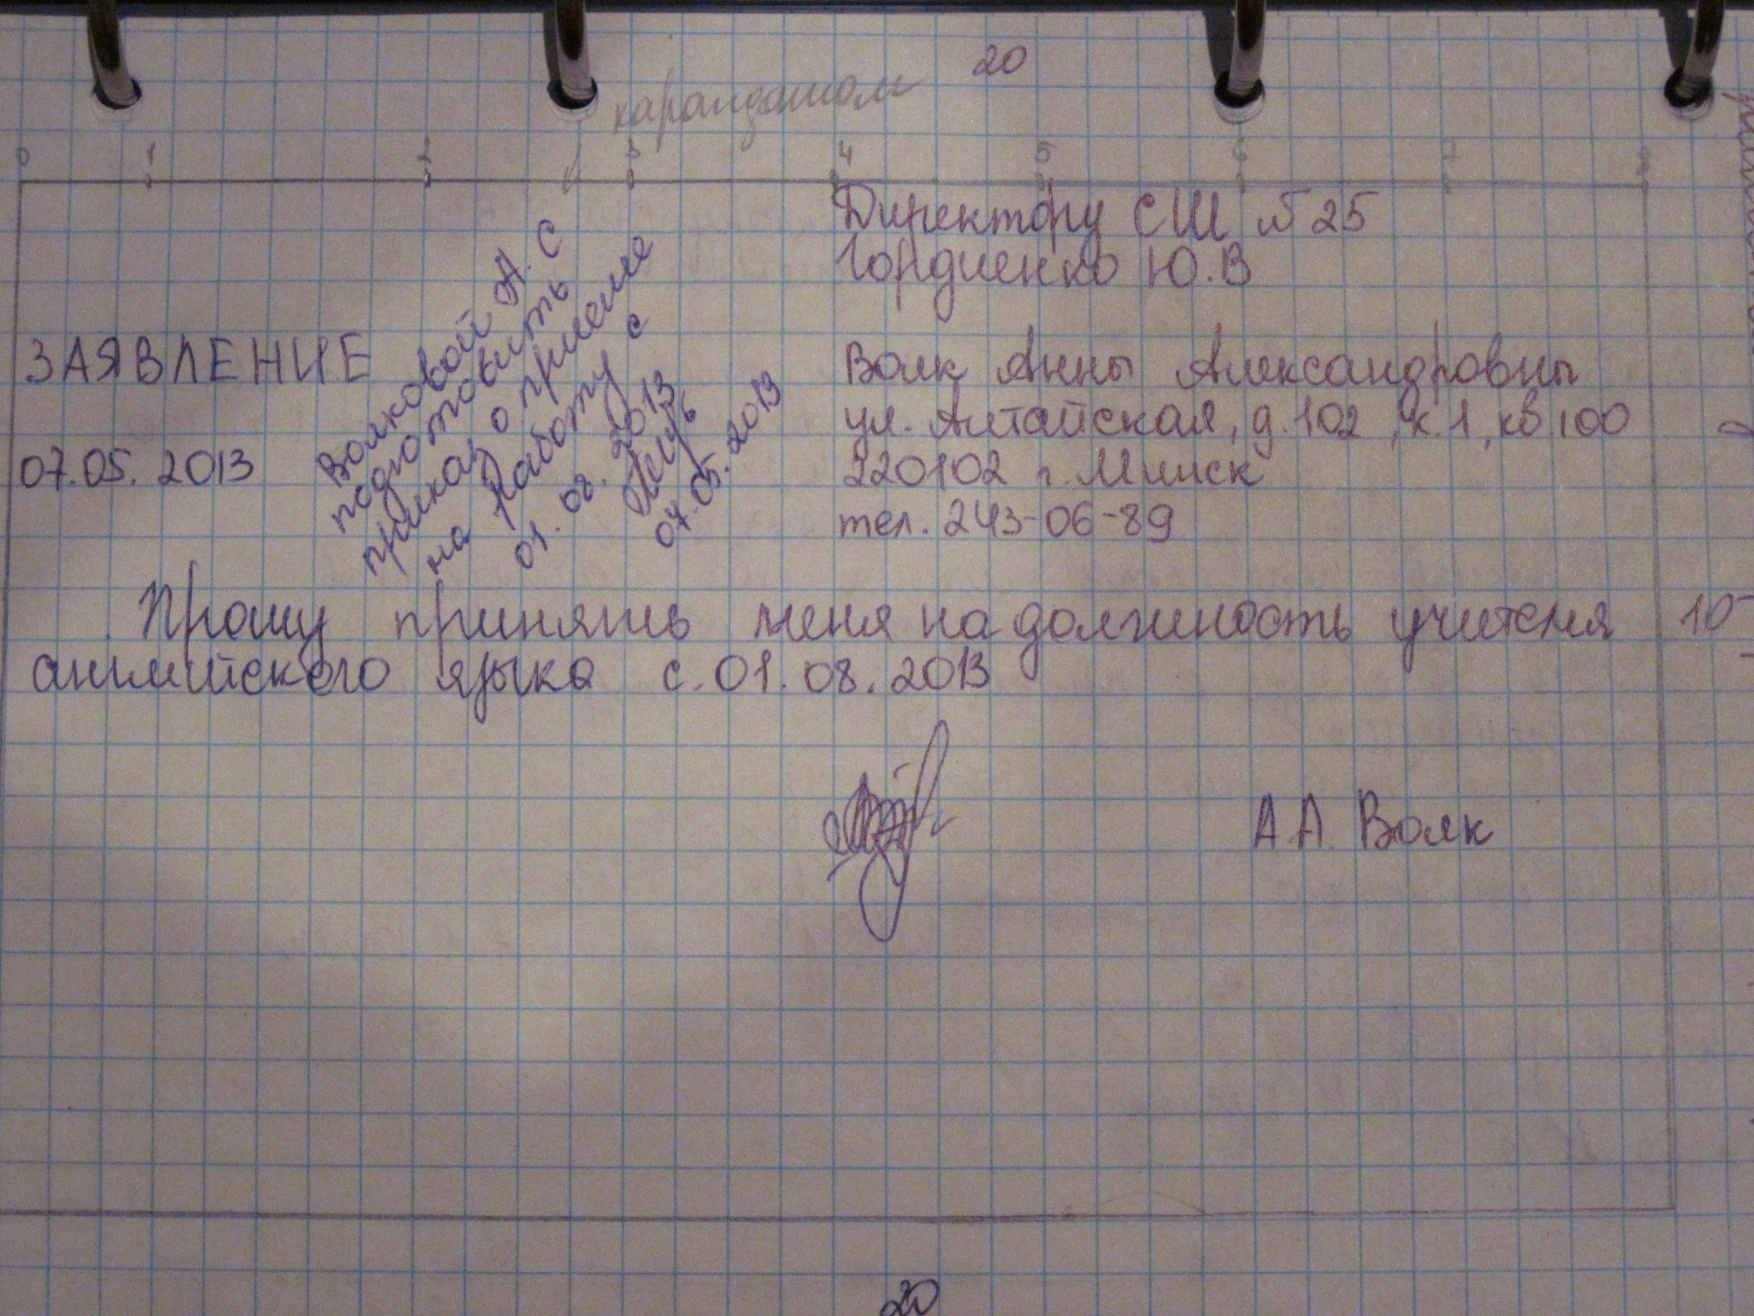 20
карандашом
0 1 2 3 4 5 6 7 8
Директору СШ №25
Гордиенко Ю.В
ЗАЯВЛЕНИЕ
07.05.2013
Волковой А.С
подготовить
приказ о приеме
на работу с
01.08.2013
07.05.2013
Волк Анны Александровны
ул. Алтайская, д.102, к.1, кв 100
220102 г. Минск
тел. 243-06-89
Прошу принять меня на должность учителя
английского языка с.01.08.2013
10
А.А. Волк
20